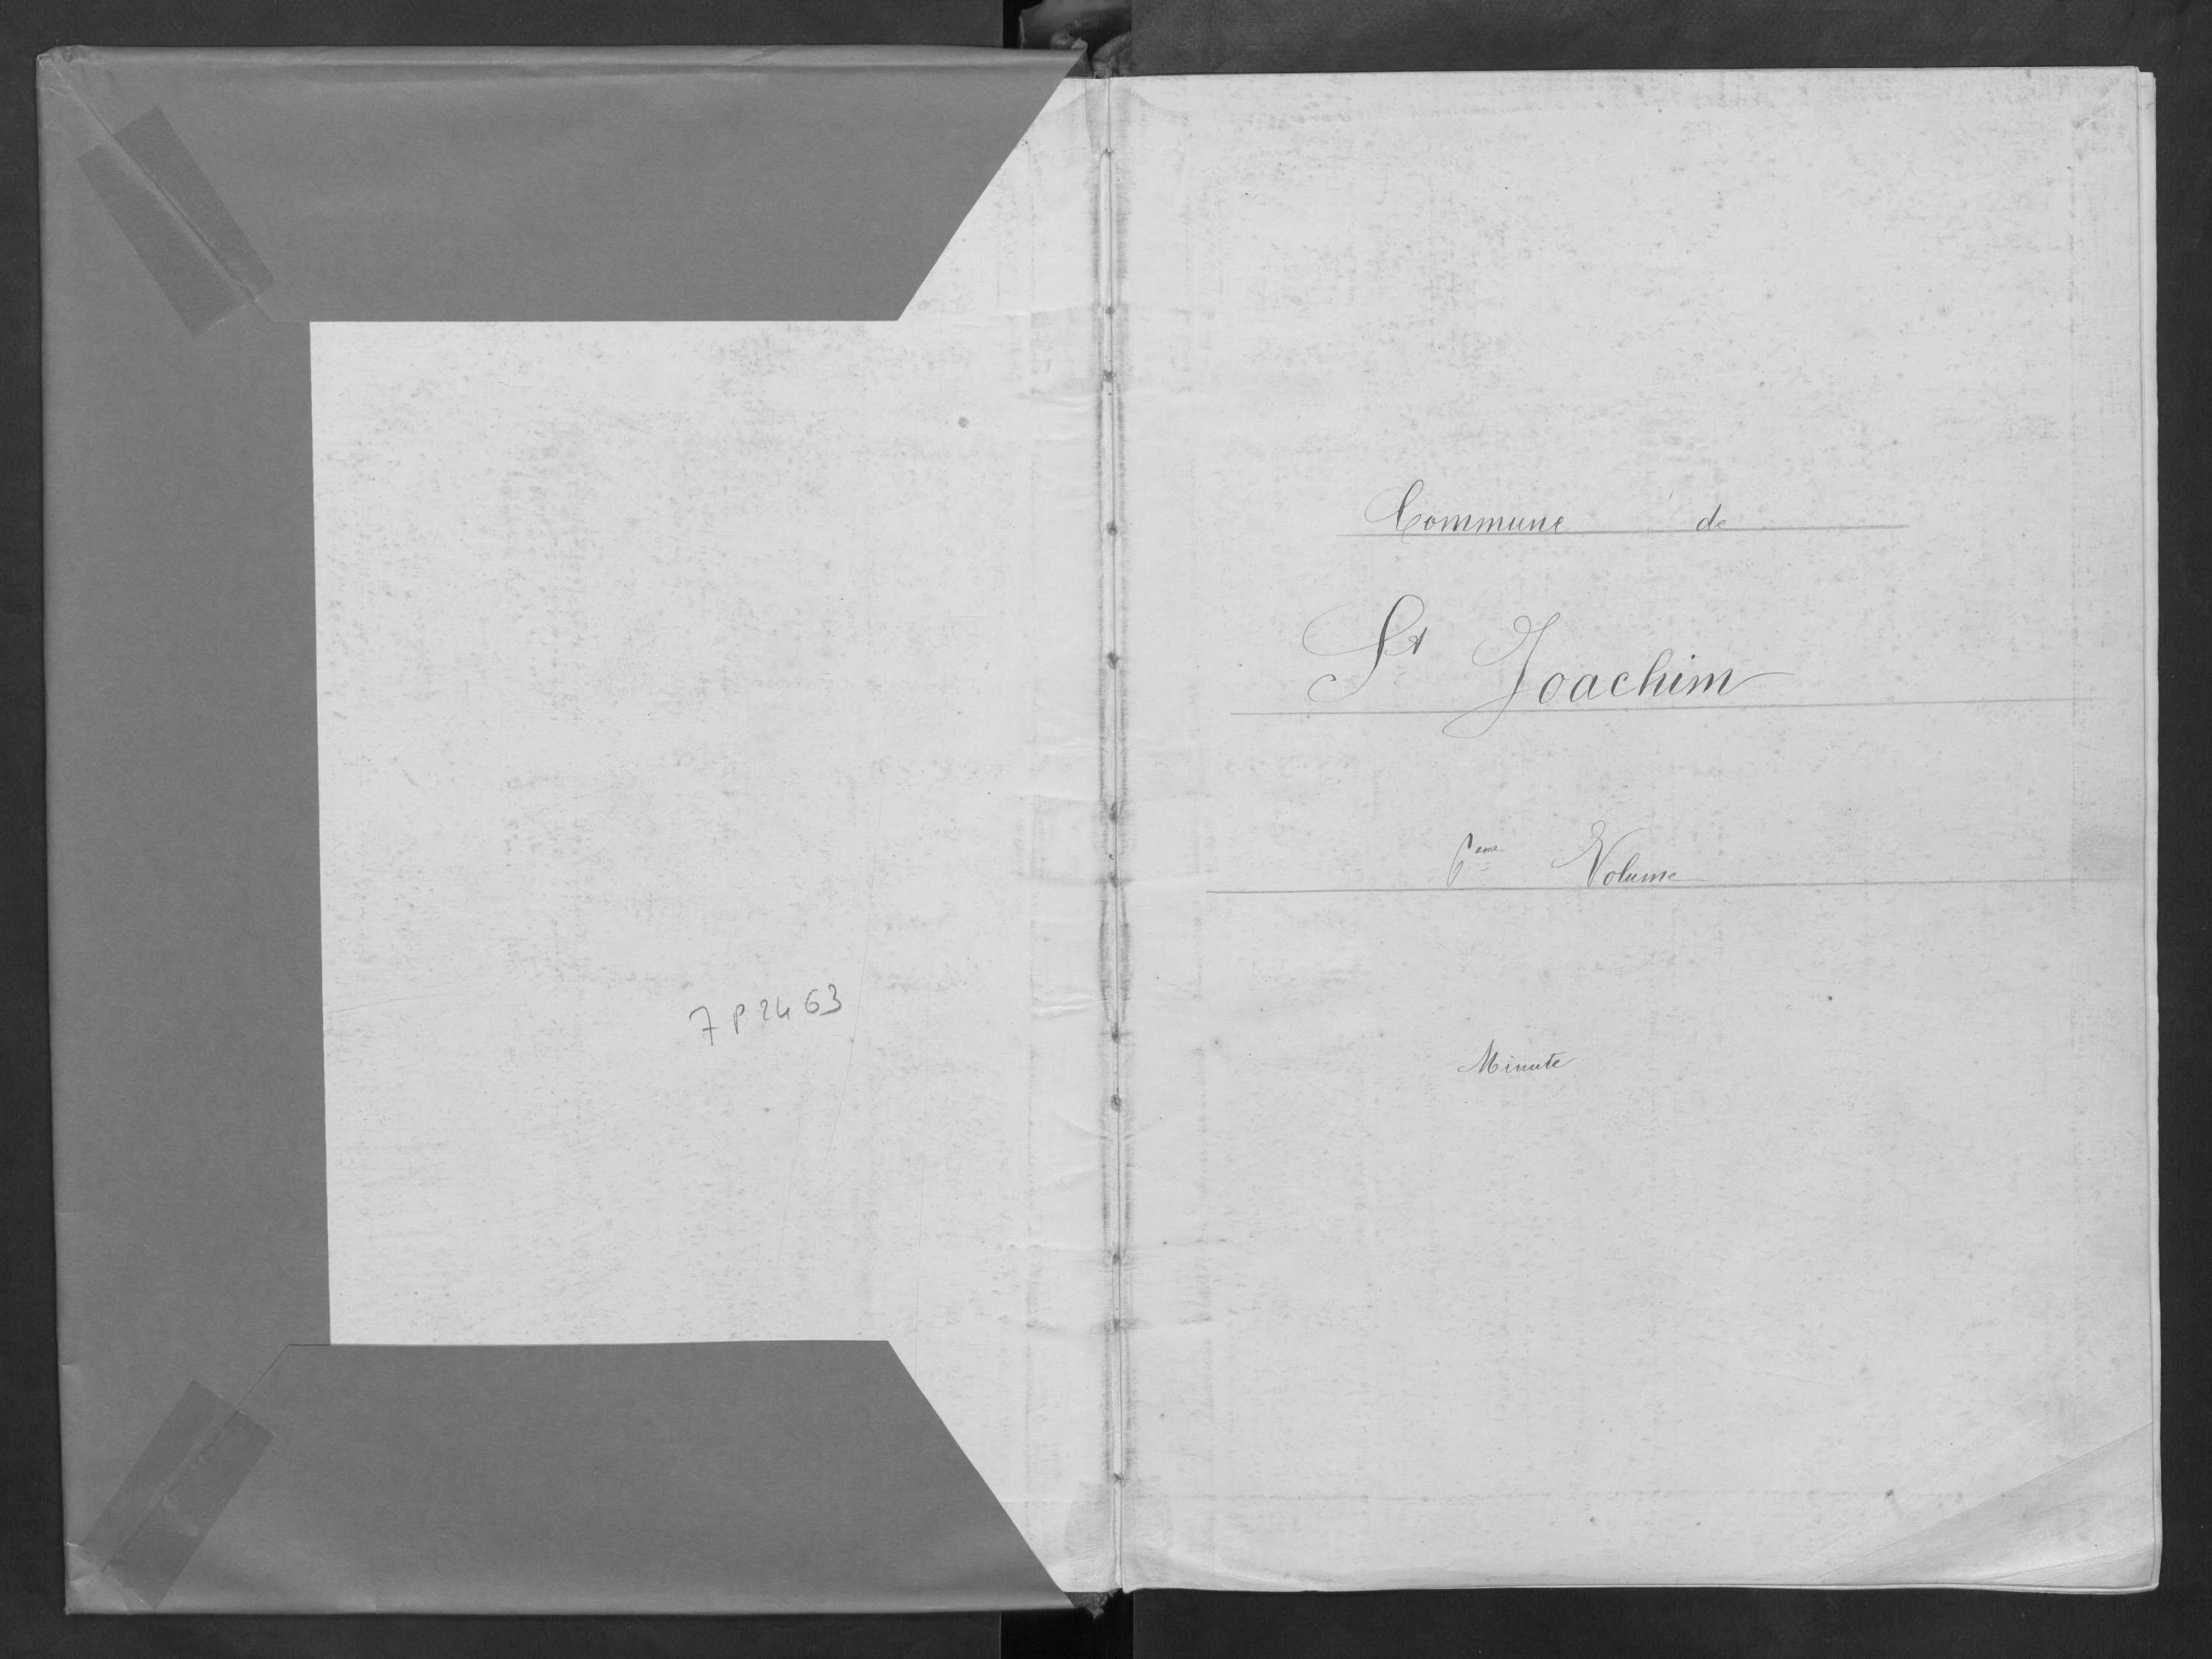 7 P 2463
Commune de
St Joachim
6eme Volume
Minute